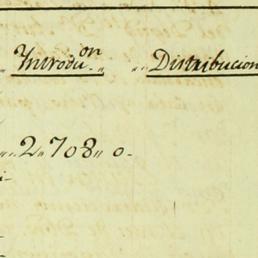 Introdu.on „ „ Distribucion
„ „ 2 „ 708 „ 0-